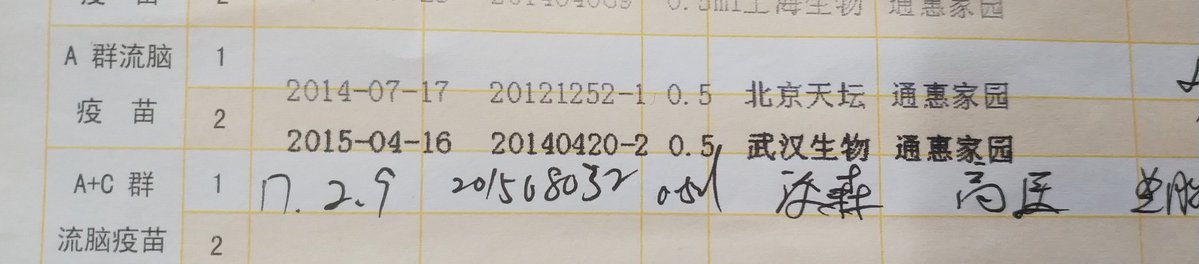 疫 苗 2 0.5ml上海生物 通惠家园
A 群流脑 1
2014-07-17 20121252-1 0.5 北京天坛 通惠家园
疫 苗 2
2015-04-16 20140420-2 0.5 武汉生物 通惠家园
A+C 群 1 17.2.9 201508032 0.5ml 沃森 高医
流脑疫苗 2